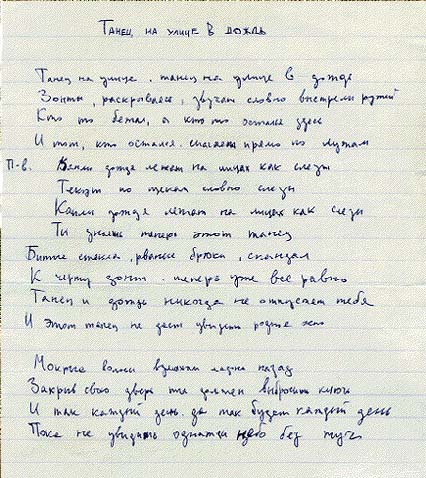 Танец на улице в дождь
Танец на улице, танец на улице в дожде
Зонты, раскрываясь, звучат словно выстрелы ружей
Кто то бежал, а кто то остался здесь
И тот, кто остался прямо по лужам
П-в. Капли дождя лежат на лицах как слезы
Текут по щекам словно слезы
Капли дождя лежат на лицах как слезы
Ты знаешь теперь этот танец
Битые стекла, рваные брюки, скандал
К черту зонт. теперь уже все равно
Танец и дождь никогда не отпустят тебя
И этот танец не даст увидеть родное
Мокрые волосы назад
Закрыв свою дверь ты должен выбросить ключ
И так каждый день, да так будет каждый день
Пока не увидишь однажды небо без туч